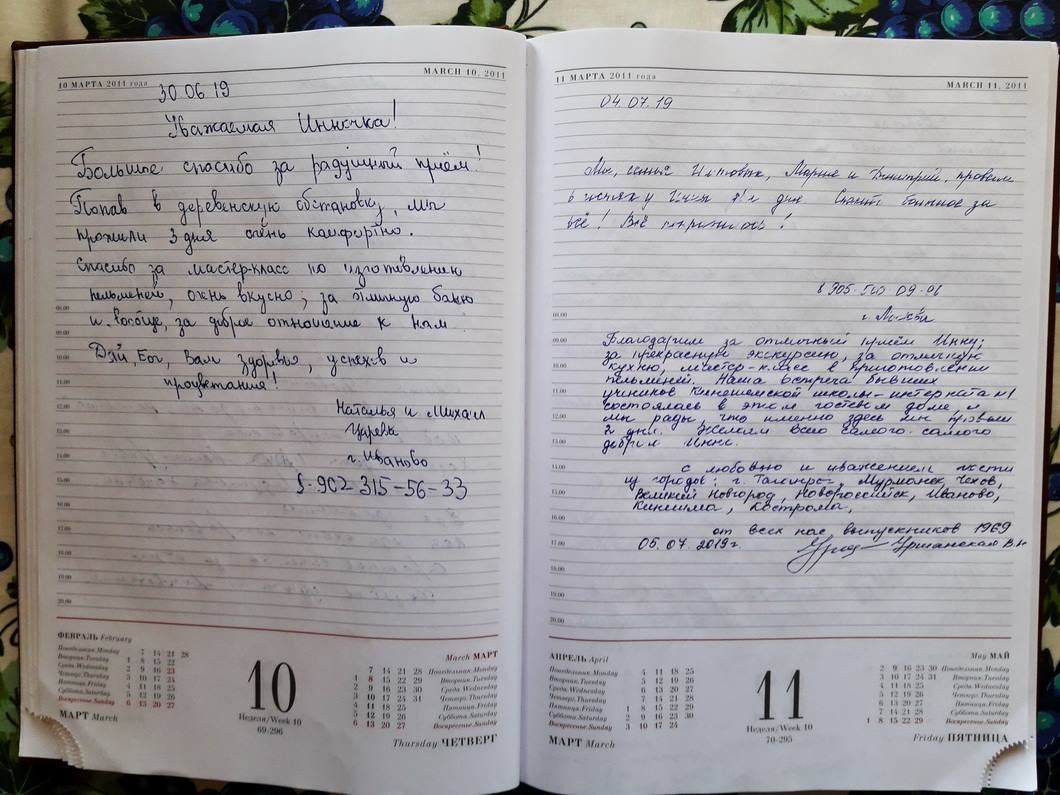 10 МАРТА 2011 года
MARCH 10, 2011
30 06 19
Уважаемая Инночка!
Большое спасибо за радушный приём!
Попав в деревенскую обстановку, мы
прожили 3 дня очень комфортно.
Спасибо за мастер-класс по изготовлению
пельменей, очень вкусно; за отличную баню
и вообще, за доброе отношение к нам.
Дай, Бог, Вам здоровья, успехов и
процветания!
Наталья и Михаил
г. Иваново
8-902-315-56-33
08.00
09.00
10.00
11.00
12.00
13.00
14.00
15.00
16.00
17.00
18.00
19.00
20.00
ФЕВРАЛЬ February
Понедельник.Monday 7 14 21 28
Вторник.Tuesday 1 8 15 22
Среда.Wednesday 2 9 16 23
Четверг.Thursday 3 10 17 24
Пятница.Friday 4 11 18 25
Суббота.Saturday 5 12 19 26
Воскресенье.Sunday 6 13 20 27
МАРТ March
10
Неделя/Week 10
69-296
March МАРТ
7 14 21 28 Понедельник.Monday
1 8 15 22 29 Вторник.Tuesday
2 9 16 23 30 Среда.Wednesday
3 10 17 24 31 Четверг.Thursday
4 11 18 25 Пятница.Friday
5 12 19 26 Суббота.Saturday
6 13 20 27 Воскресенье.Sunday
Thursday ЧЕТВЕРГ
11 МАРТА 2011 года
MARCH 11, 2011
04.07.19
Мы, семья Мария и Дмитрий, провели
в гостях у дня за
всё! Всё понравилось!
8 905
г.
Благодарим за отличный приём Инну;
за прекрасную экскурсию, за отличную
кухню, мастер-класс в приготовлении
пельменей. Наша встреча бывших
учеников Кинешемской школы-интерната №1
состоялась в этом гостевом доме, и
мы рады, что именно здесь мы провели
2 дня. Желаем всего самого-самого
доброго Инне.
С любовью и уважением гости
из городов: г. Таганрог, Мурманск, Чехов,
Великий Новгород, Новороссийск, Иваново,
Кинешма, Кострома,
от всех нас выпускников 1969
05.07.2019г. В.Н
08.00
09.00
10.00
11.00
12.00
13.00
14.00
15.00
16.00
17.00
18.00
19.00
20.00
АПРЕЛЬ April
Понедельник.Monday 4 11 18 25
Вторник.Tuesday 5 12 19 26
Среда.Wednesday 6 13 20 27
Четверг.Thursday 7 14 21 28
Пятница.Friday 1 8 15 22 29
Суббота.Saturday 2 9 16 23 30
Воскресенье.Sunday 3 10 17 24
МАРТ March
11
Неделя/Week 10
70-295
May МАЙ
2 9 16 23 30 Понедельник.Monday
3 10 17 24 31 Вторник.Tuesday
4 11 18 25 Среда.Wednesday
5 12 19 26 Четверг.Thursday
6 13 20 27 Пятница.Friday
7 14 21 28 Суббота.Saturday
1 8 15 22 29 Воскресенье.Sunday
Friday ПЯТНИЦА